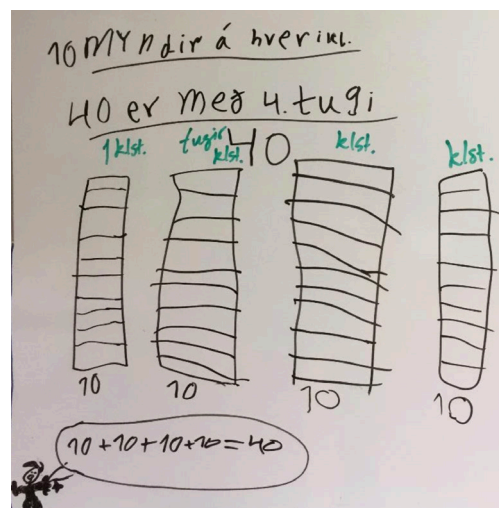 10 MYNdir á hverikl.
40 er með 4.tugi
1 klst. tugir 40 klst. klst.
klst.
10 10 10 10
10+10+10+10=40